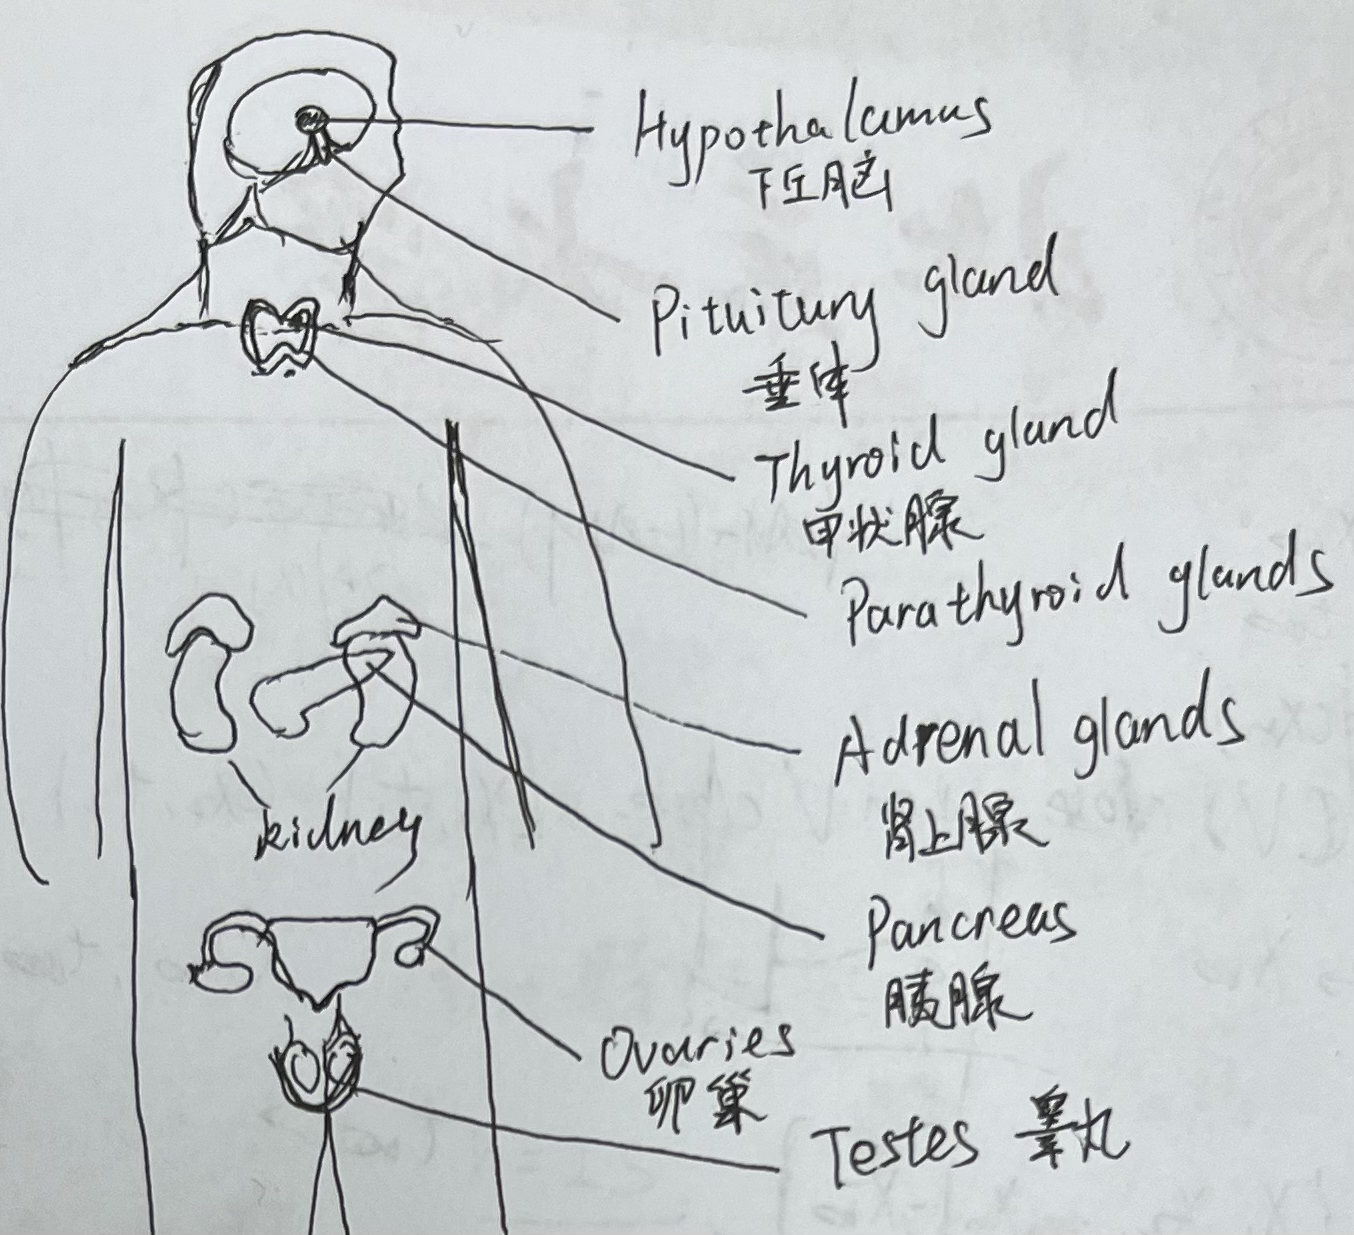 Hypothalamus
下丘脑
Pituitury gland
垂体
Thyroid gland
甲状腺
Parathyroid glands
Adrenal glands
肾上腺
kidney
Pancreas
胰腺
Ovaries
卵巢
Testes 睾丸